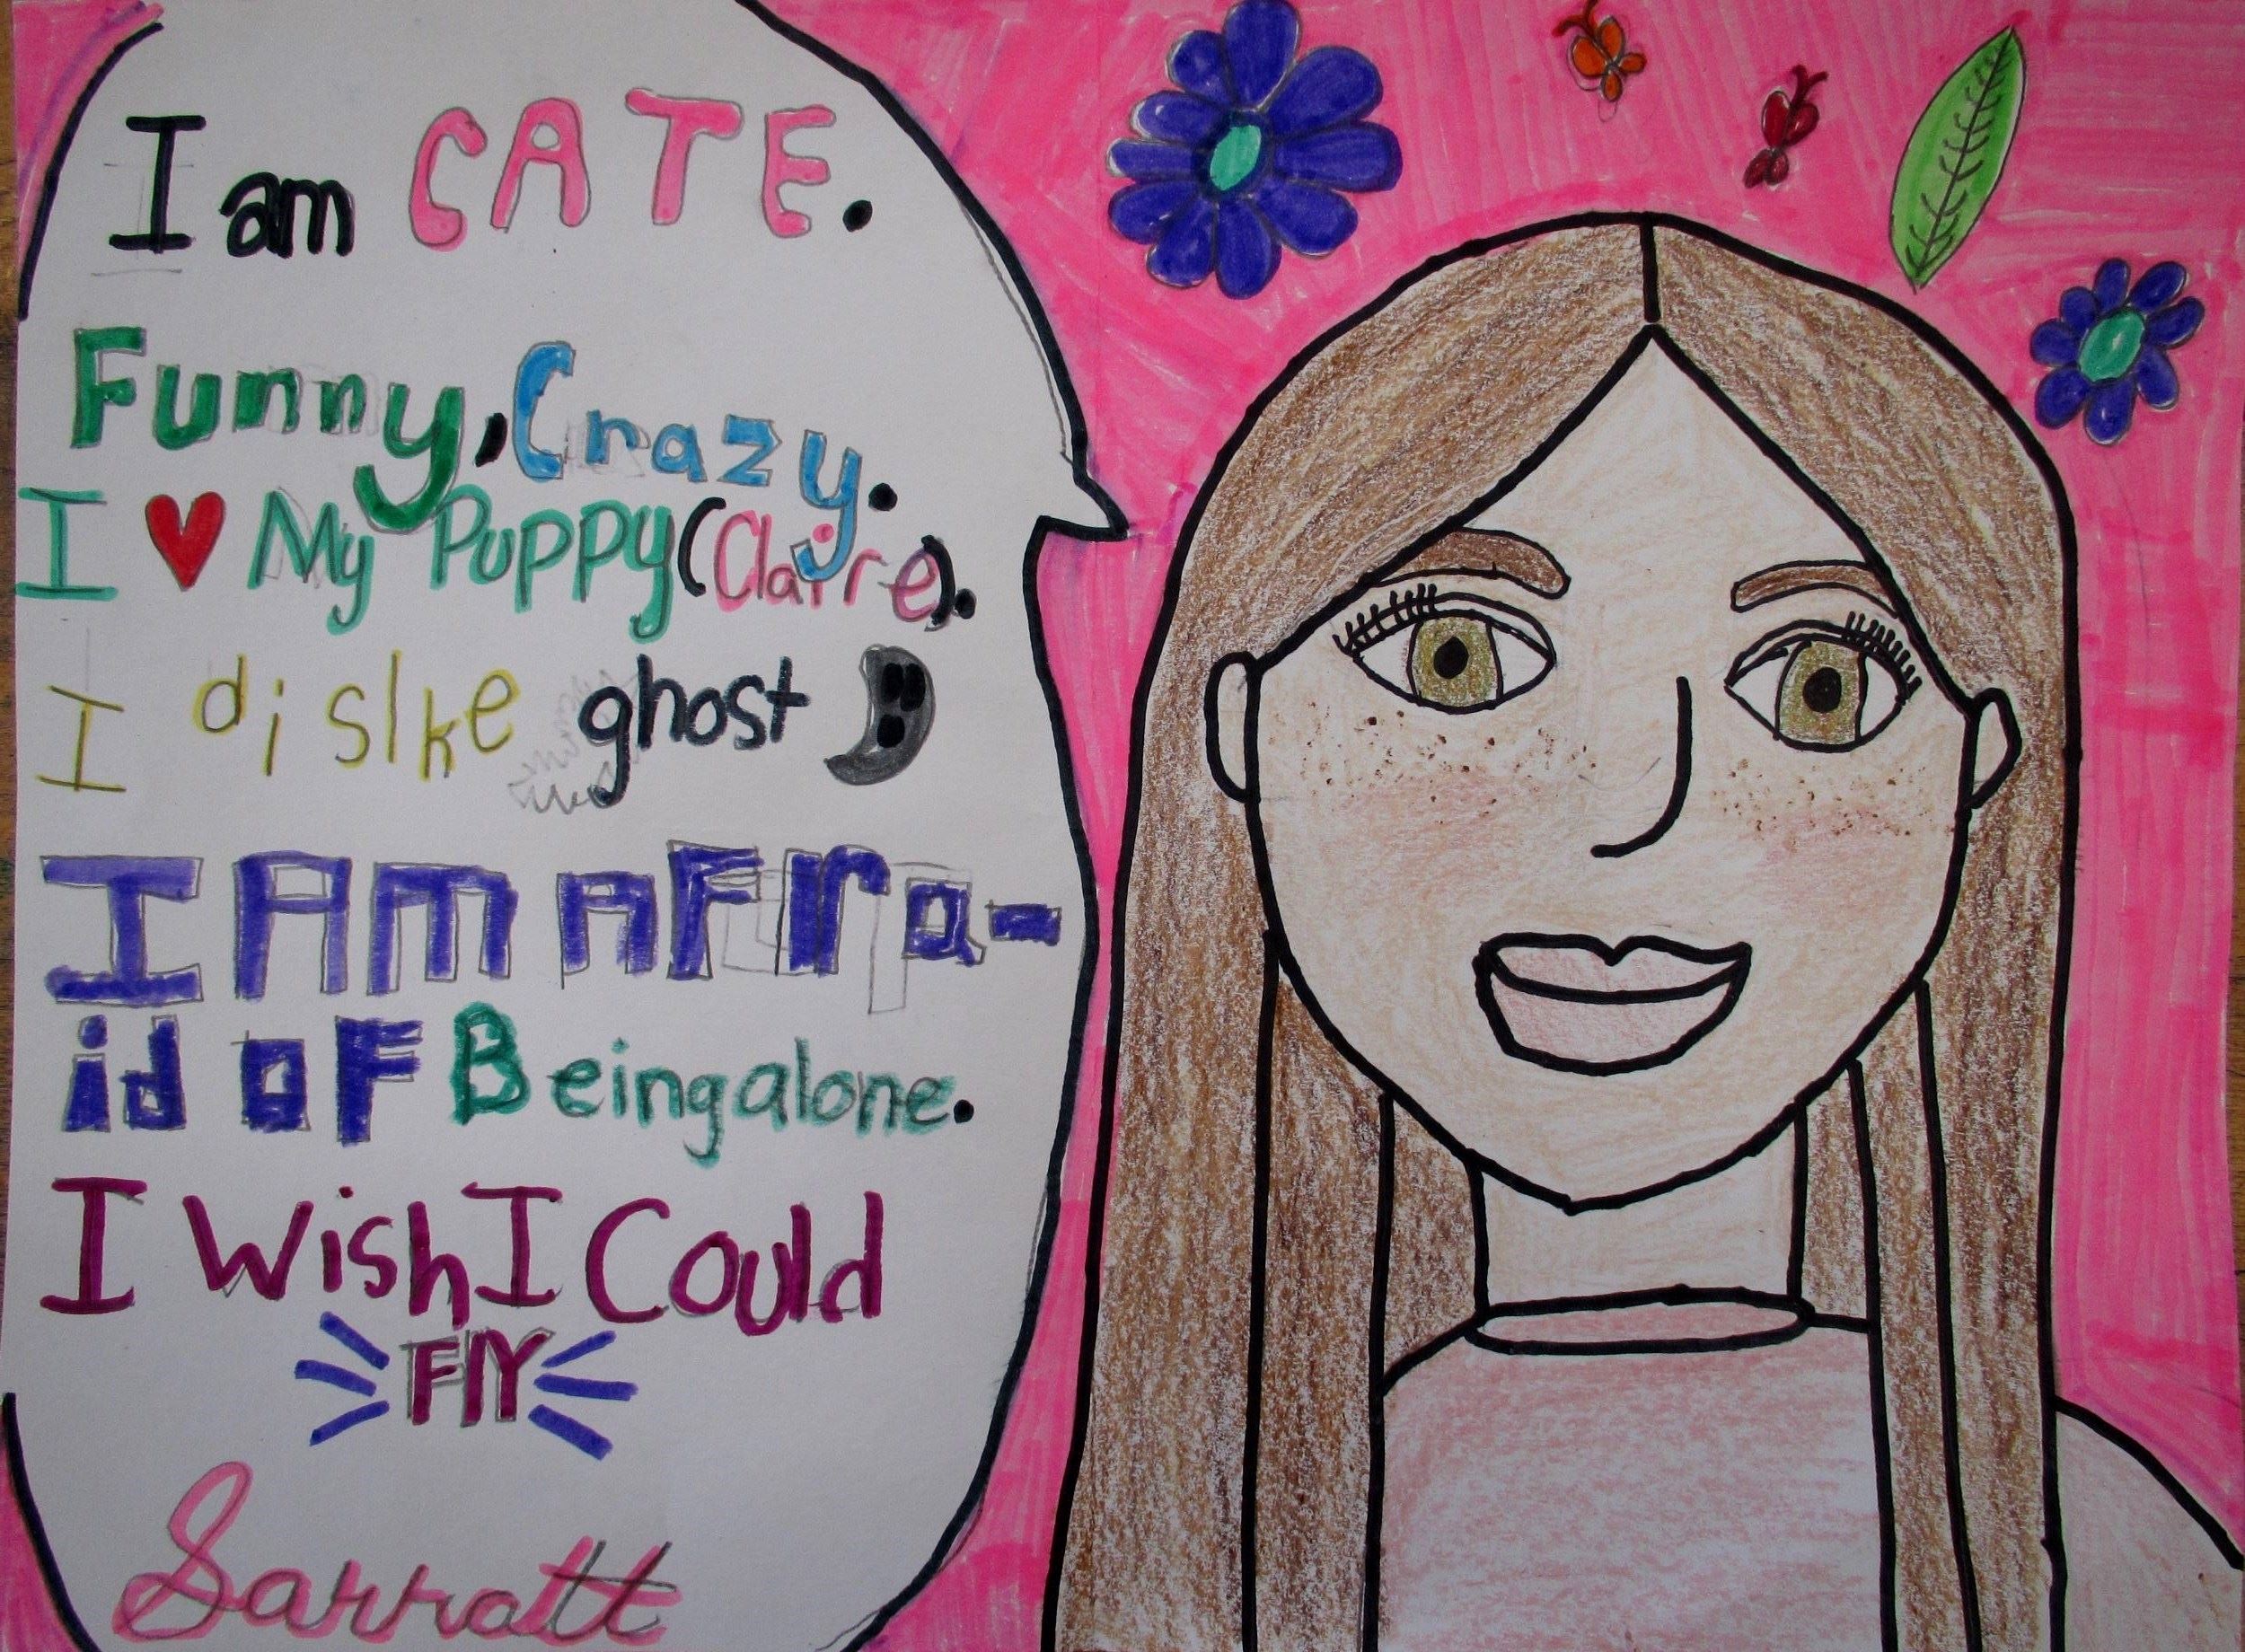 I am CATE.
Funny, Crazy.
I ♥ My Puppy (Claire).
I dislke ghost
I AM AFra-
id oF Being alone.
I Wish I Could
FlY
Sarratt